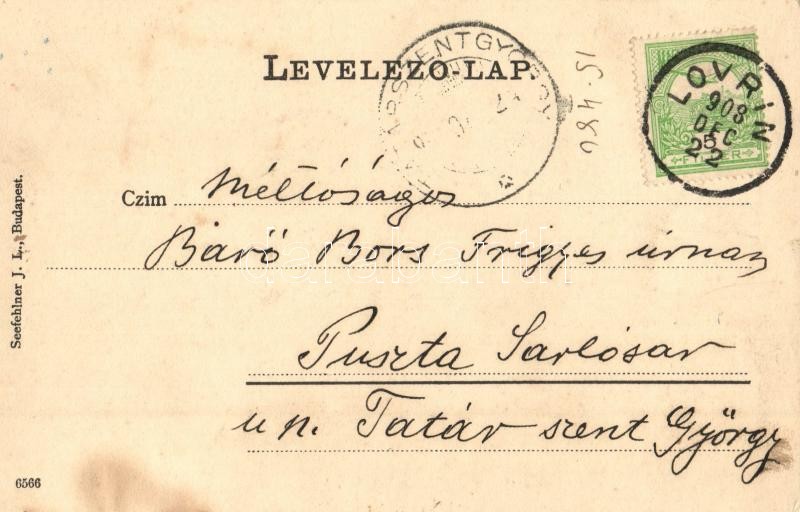 LEVELEZŐ-LAP.
TATÁRSZENTGYÖRGY
15.480
LOVRIN
908
DEC
25
2
FILLÉR
Czim Méltóságos
Báró Bors Frigyes úrnak
Puszta Sarlósar
u. p. Tatár szent György
Seefehlner J. L., Budapest.
6566
darabanth